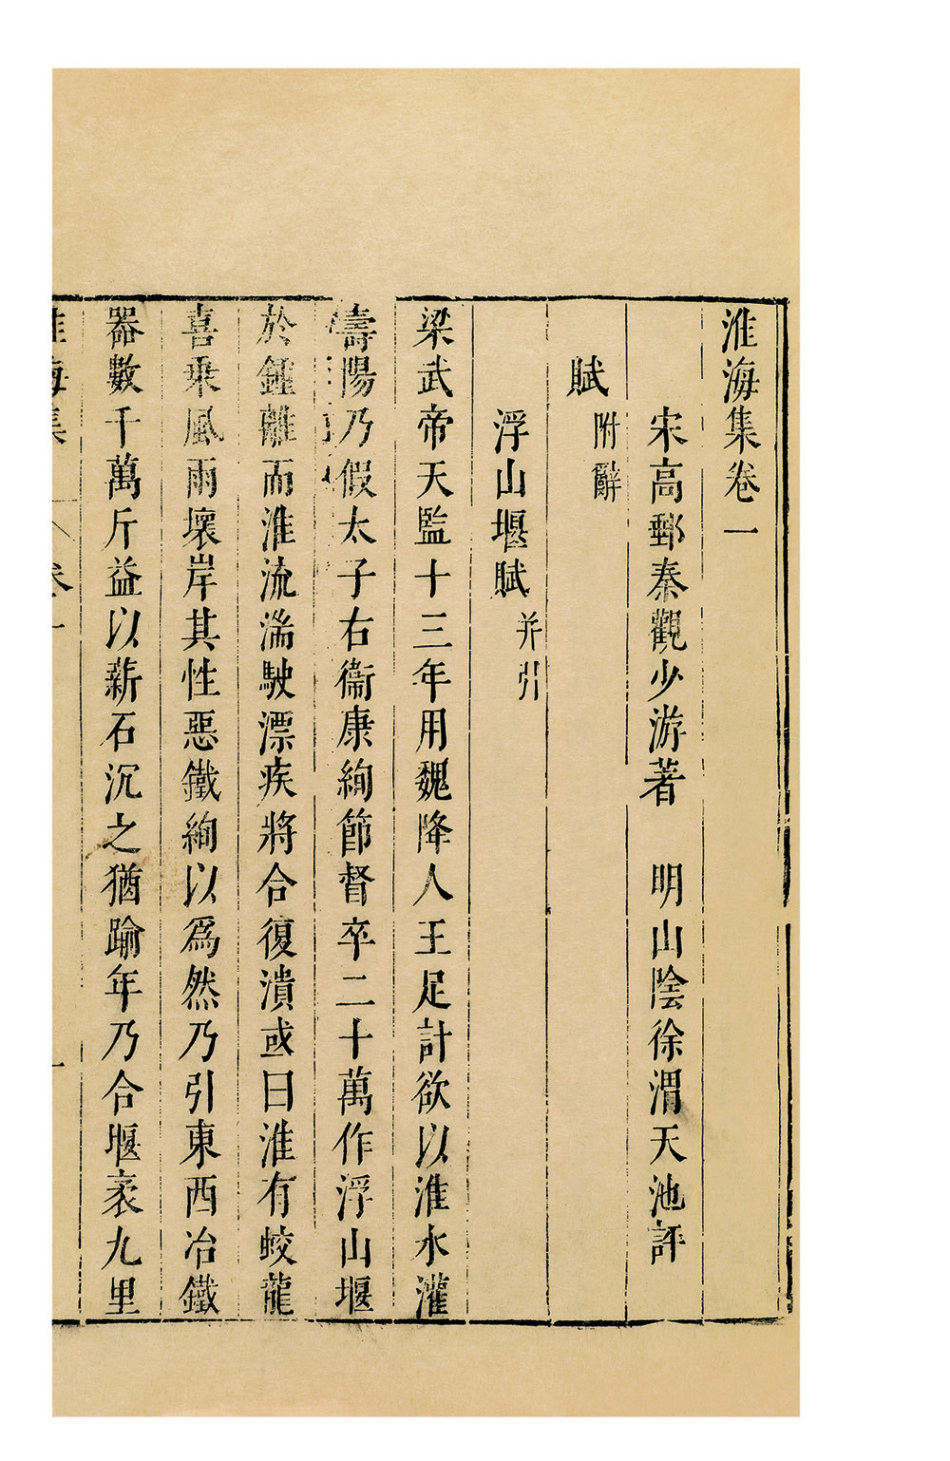 淮海集卷一
宋高郵秦觀少游著　明山陰徐渭天池評
賦附辭
浮山堰賦并引
梁武帝天監十三年用魏降人王足計欲以淮水灌
壽陽乃假太子右衞康絢節督卒二十萬作浮山堰
於鍾離而淮流湍駛漂疾將合復潰或曰淮有蛟龍
喜乗風雨壞岸其性惡鐵絢以爲然乃引東西冶鐵
器數千萬斤益以薪石沉之猶踰年乃合堰袤九里
淮海集　卷一　一